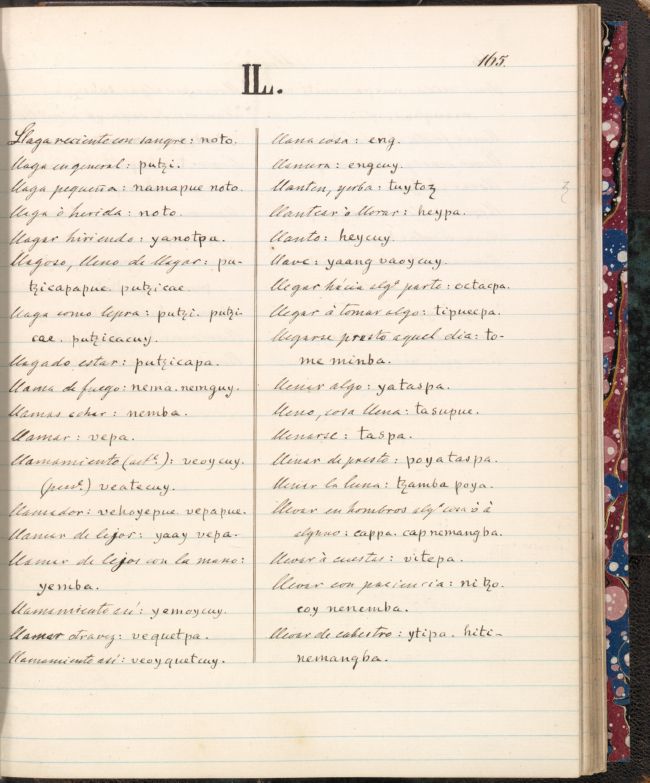 165.
LL.
Llaga reciente con sangre: noto.
Llaga en general: putzi.
Llaga pequeña: namapue noto.
Llaga ò herida: noto.
Llagar hiriendo: yanotpa.
Llagoso, lleno de llagas: pu-
tzicapapue. putzicae.
Llaga como lepra: putzi. putzi-
cae. putzicacuy.
Llagado estar: putzicapa.
Llama de fuego: nema. nemguy.
Llamas echar: nemba.
Llamar: vepa.
Llamamiento (actᵉ.): veoycuy.
(pasᵉ.) veatecuy.
Llamador: vehoyepue. vepapue.
Llamar de lejos: yaay vepa.
Llamar de lejos con la mano:
yemba.
Llamamiento así: yemoycuy.
Llamar otravez: vequetpa.
Llamamiento así: veoyquetcuy.
Llana cosa: eng.
Llanura: engcuy.
Llanten, yerba: tuytoz
Llantear ò llorar: heypa.
Llanto: heycuy.
Llave: yaang vaoycuy.
Llegar hácia algᵃ parte: octaepa.
Llegar à tomar algo: tipuecpa.
Llegarse presto aquel dia: to-
me minba.
Llenar algo: yataspa.
Lleno, cosa llena: tasupue.
Llenarse: taspa.
Llenar de presto: poyataspa.
Llenar la luna: tzamba poya.
Llevar en hombros algᵃ cosa ò à
alguno: cappa. capnemangba.
Llevar à cuestas: vitepa.
Llevar con paciencia: nitzo.
coy nenemba.
Llevar de cabestro: ytipa. hiti-
nemangba.